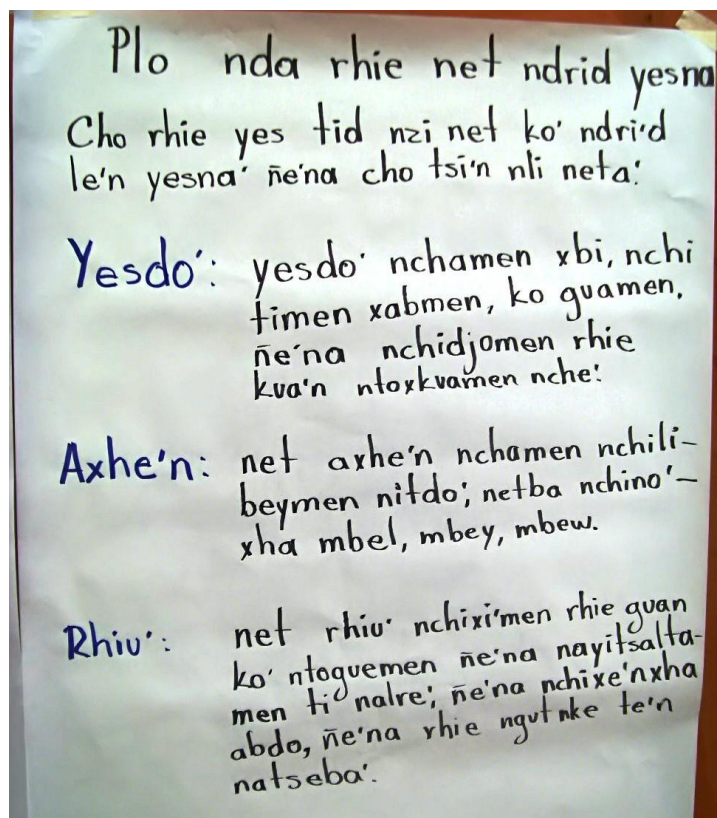 Plo nda rhie net ndrid yesna
Cho rhie yes tid nzi net ko' ndri'd
le'n yesna' ñe'na cho tsi'n nli neta'.
Yesdo': yesdo' nchamen xbi, nchi
timen xabmen, ko guamen,
ñe'na nchidjomen rhie
kva'n ntoxkvamen nche'.
Axhe'n: net axhe'n nchamen nchili-
beymen nitdo', netba nchino'-
xha mbel, mbey, mbew.
Rhiu': net rhiu' nchixi'men rhie guan
ko' ntoguemen ñe'na nayitsalta-
men ti' nalre', ñe'na nchixe'nxha
abdo, ñe'na rhie ngutnke te'n
natseba'.